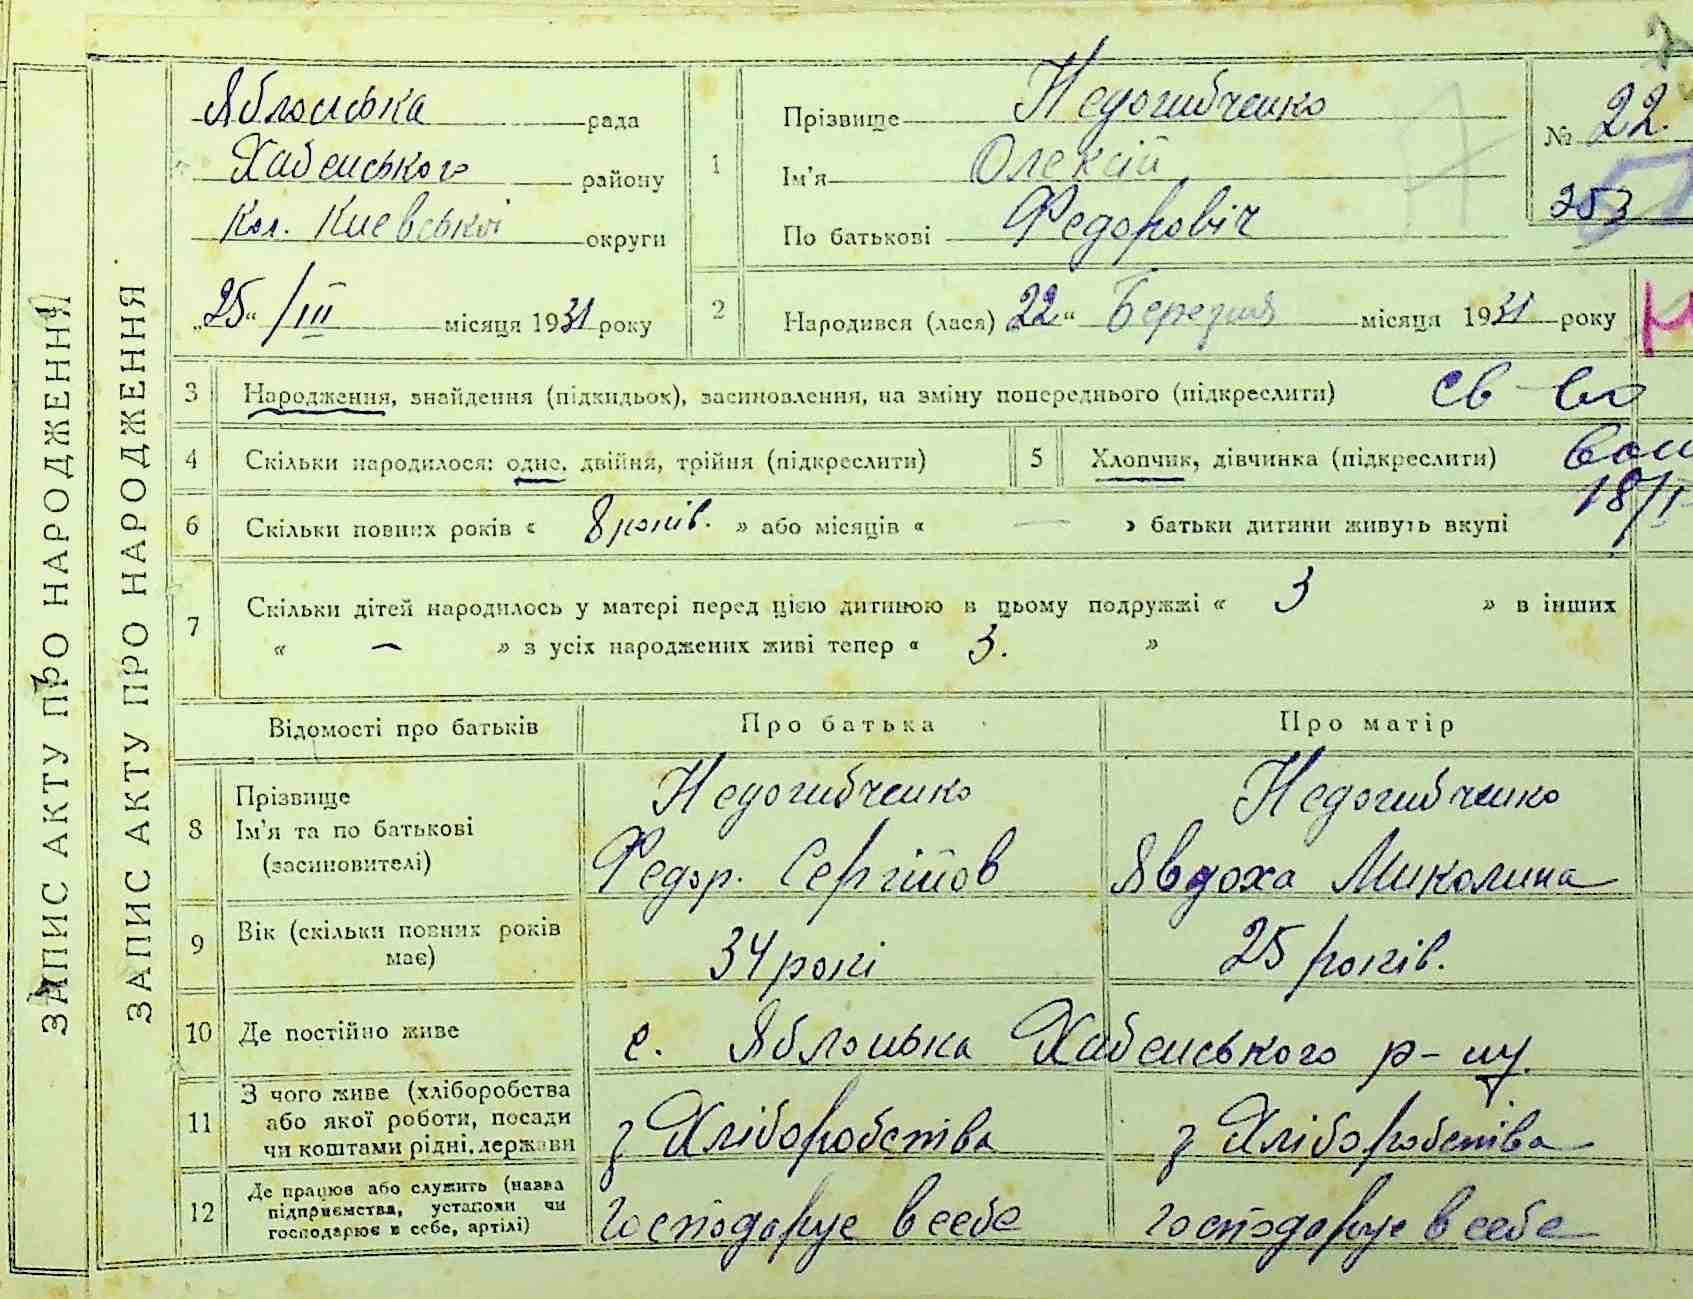 ЗАПИС АКТУ ПРО НАРОДЖЕННЯ
ЗАПИС АКТУ ПРО НАРОДЖЕННЯ
Яблонська рада
Хабенського району
Кол. Киевської округи
„25“ /III місяця 1931 року
1
Прізвище Недогибченко
Ім'я Олексій
По батькові Федоровіч
№ 22.
253
2
Народився (лася) 22“ Березня місяця 1931 року
3 Народження, знайдення (підкидьок), засиновлення, на зміну попереднього (підкреслити)
св-во
4 Скільки народилося: одне, двійня, трійня (підкреслити)
5 Хлопчик, дівчинка (підкреслити)
18/I
6 Скільки повних років « 8 років. » або місяців « — » батьки дитини живуть вкупі
7 Скільки дітей народилось у матері перед цією дитиною в цьому подружжі « 3 » в інших
« — » з усіх народжених живі тепер « 3. »
Відомості про батьків Про батька Про матір
8 Прізвище
Ім'я та по батькові
(засиновителі)
Недогибченко
Федор. Сергійов
Недогибченко
Явдоха Миколина
9 Вік (скільки повних років
має)
34 рокі
25 років.
10 Де постійно живе
с. Яблонька Хабенського р-ну
11 З чого живе (хліборобства
або якої роботи, посади
чи коштами рідні, держави
з Хліборобства
з Хліборобства
12 Де працює або служить (назва
підприємства, установи чи
господарює в себе, артілі)
господарує в себе
господарує в себе